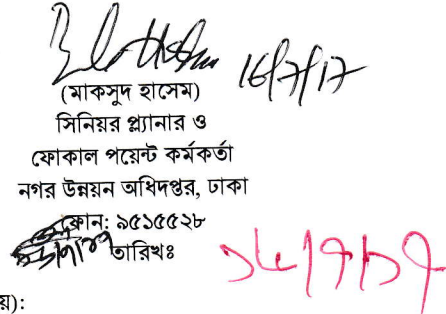 16/7/17
(মাকসুদ হাসেম)
সিনিয়র প্ল্যানার ও
ফোকাল পয়েন্ট কর্মকর্তা
নগর উন্নয়ন অধিদপ্তর, ঢাকা
ফোন: ৯৫১৫৫২৮
তারিখঃ
১৬/৭/১৭
য়):